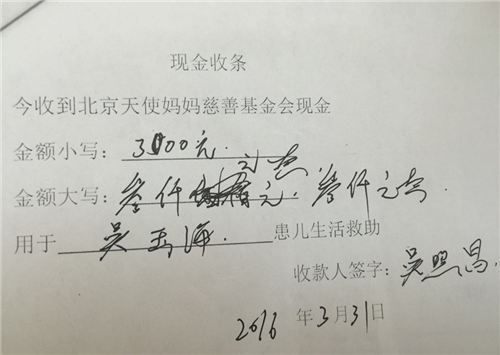 现金收条
今收到北京天使妈妈慈善基金会现金
金额小写：3000元.
元整
金额大写：叁仟 元. 叁仟元整
用于 吴玉海. 患儿生活救助
收款人签字：吴照昌.
2016 年 3 月 31 日